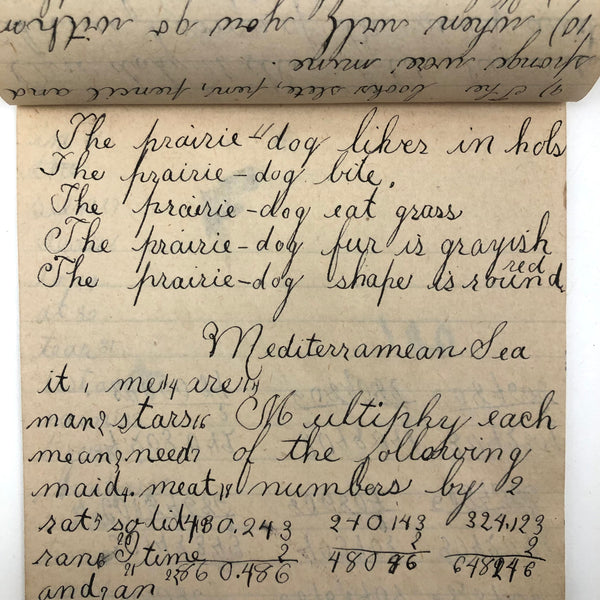 10) when will you go with
sponge were mine.
9) The books slete, pen, pencil and
The prairie-dog lives in hols
The prairie-dog bite.
The prairie-dog eat grass
The prairie-dog fur is grayish
red
The prairie-dog shape is round.
Mediterramean Sea
it, me14 are,
man2 stars16 Multiphy each
mean3 need7 of the following
maid4. meat18 numbers by 2
rat5 solid19 430.243 240,143 324,123
20 2 2 2
ran6 I time 860.486 48096 648246
21 22
and7 an